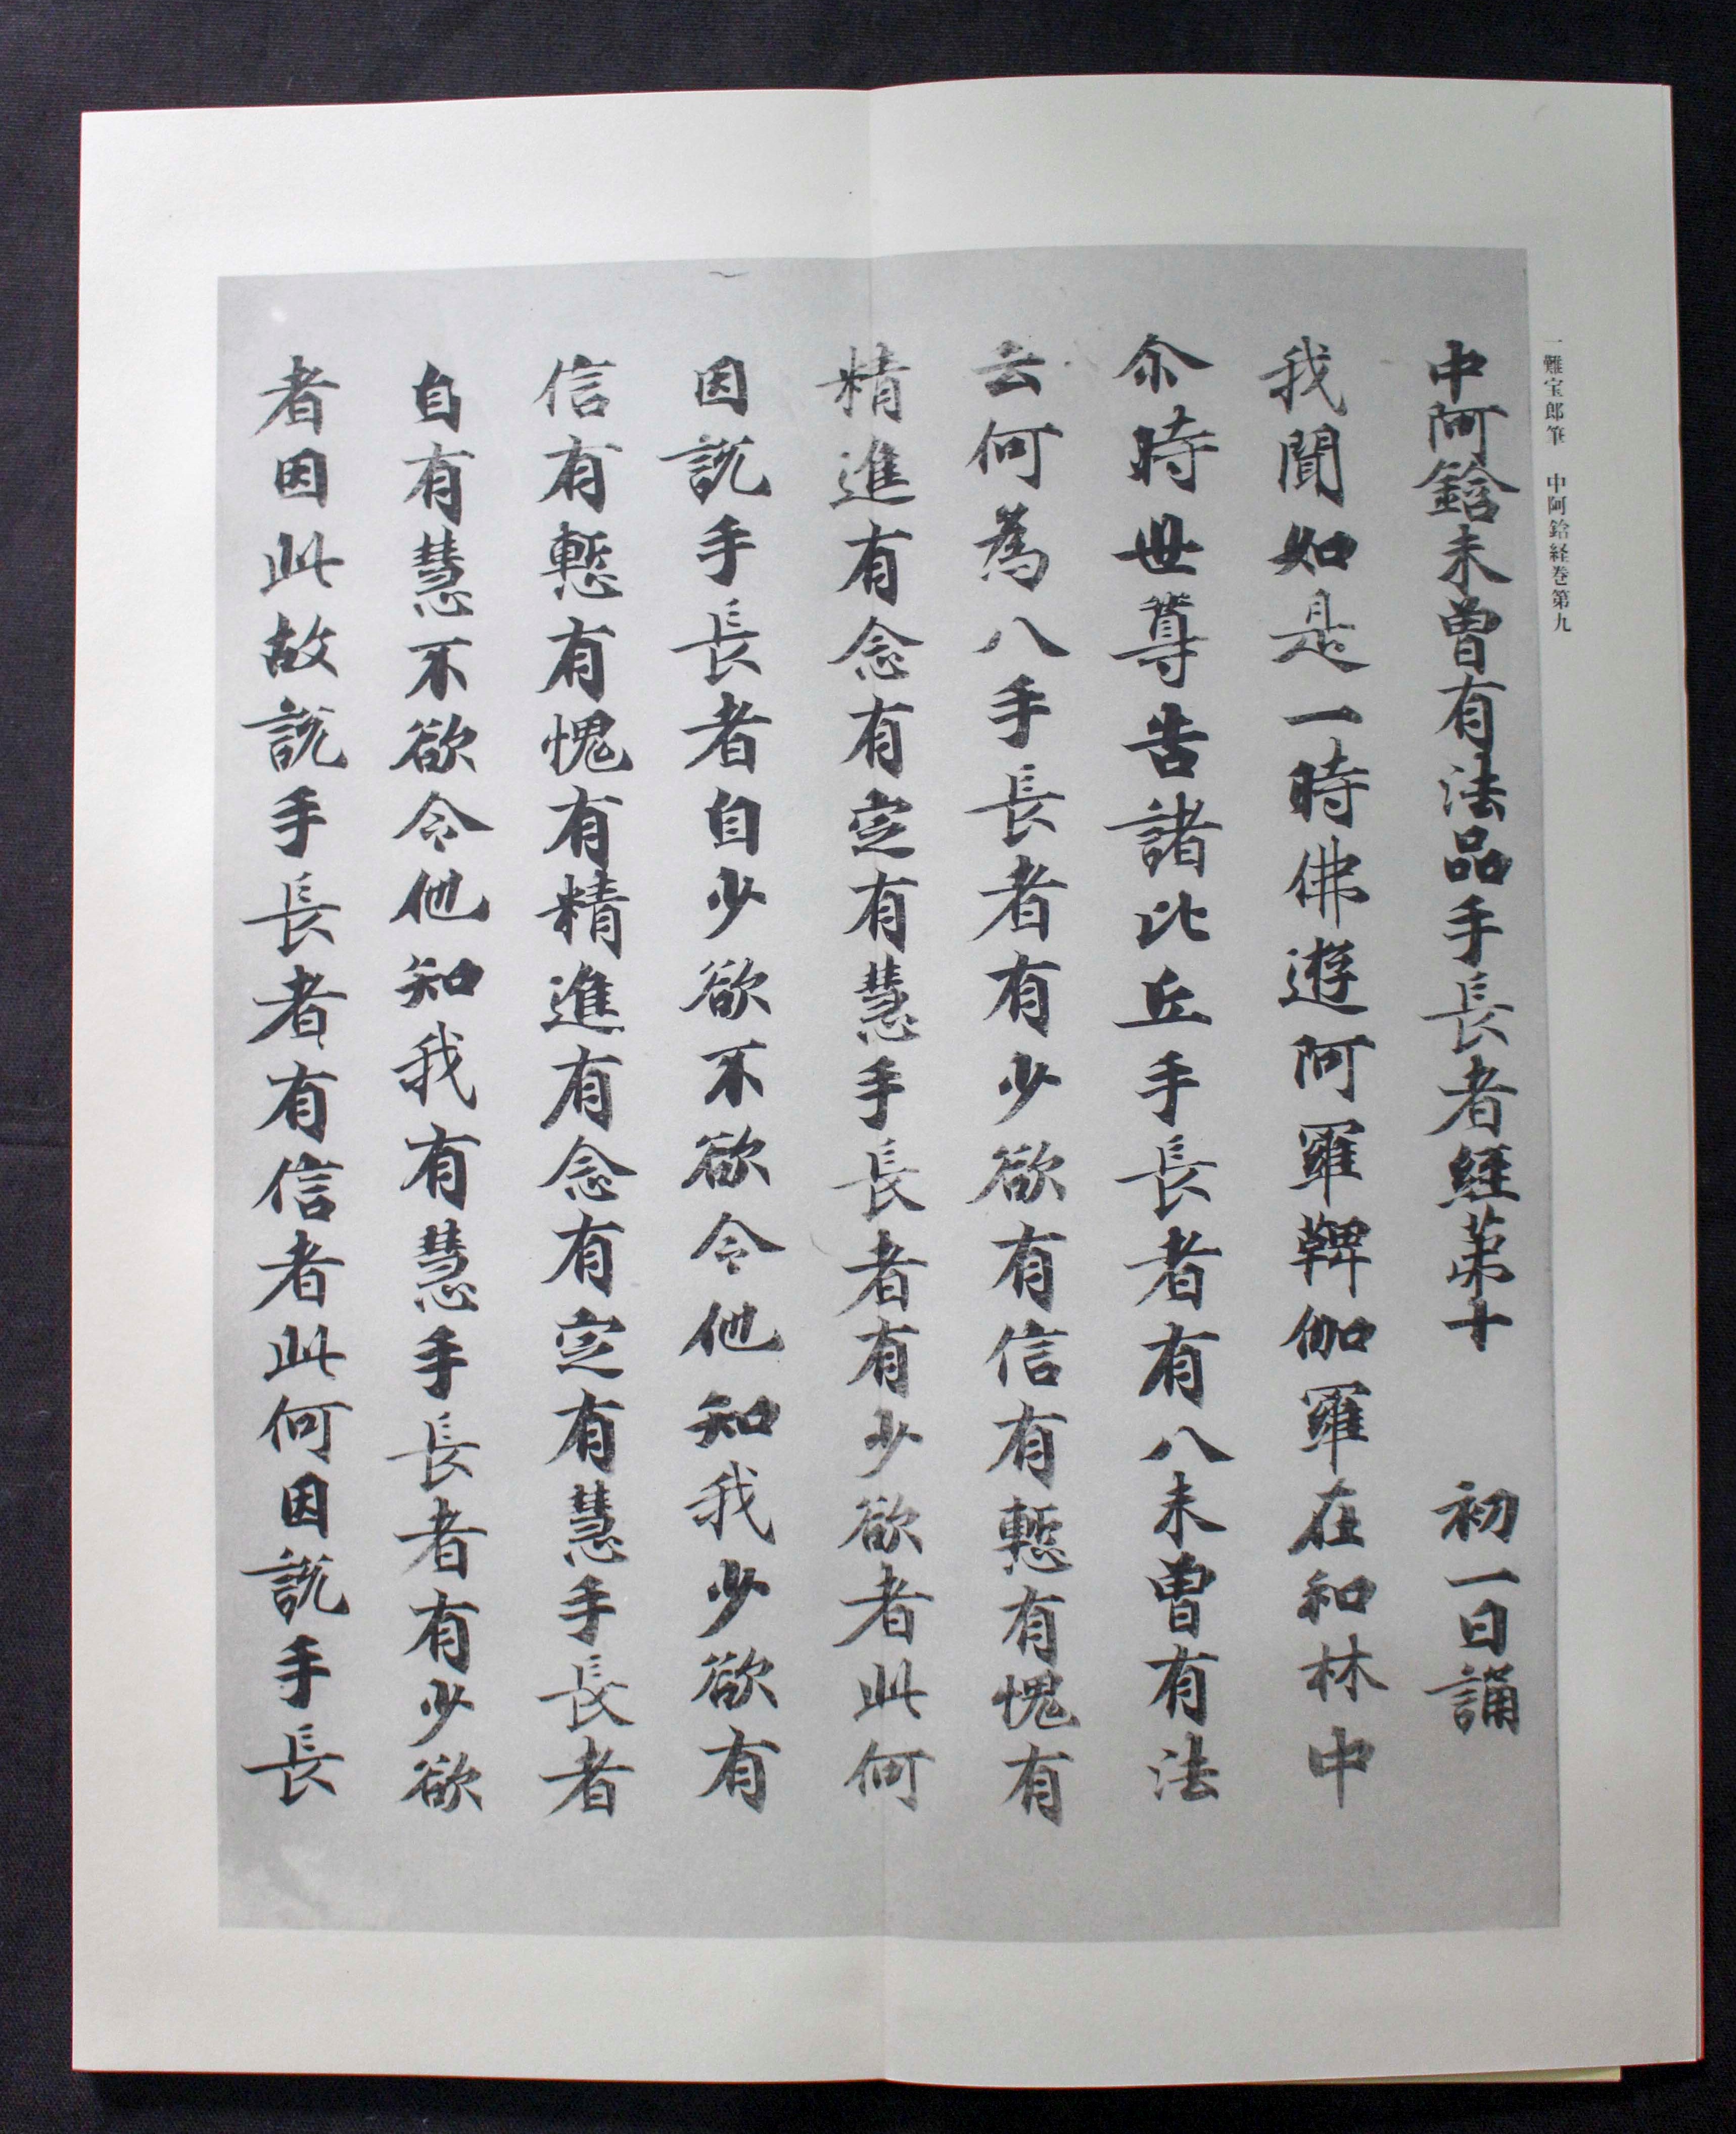 一難宝郎筆　中阿鋡経巻第九
中阿鋡未曾有法品手長者經苐十　初一日誦
我聞如是一時佛遊阿羅鞞伽羅在和林中
尒時世尊告諸比丘手長者有八未曾有法
云何為八手長者有少欲有信有慙有愧有
精進有念有定有慧手長者有少欲者此何
因說手長者自少欲不欲令他知我少欲有
信有慙有愧有精進有念有定有慧手長者
自有慧不欲令他知我有慧手長者有少欲
者因此故說手長者有信者此何因說手長